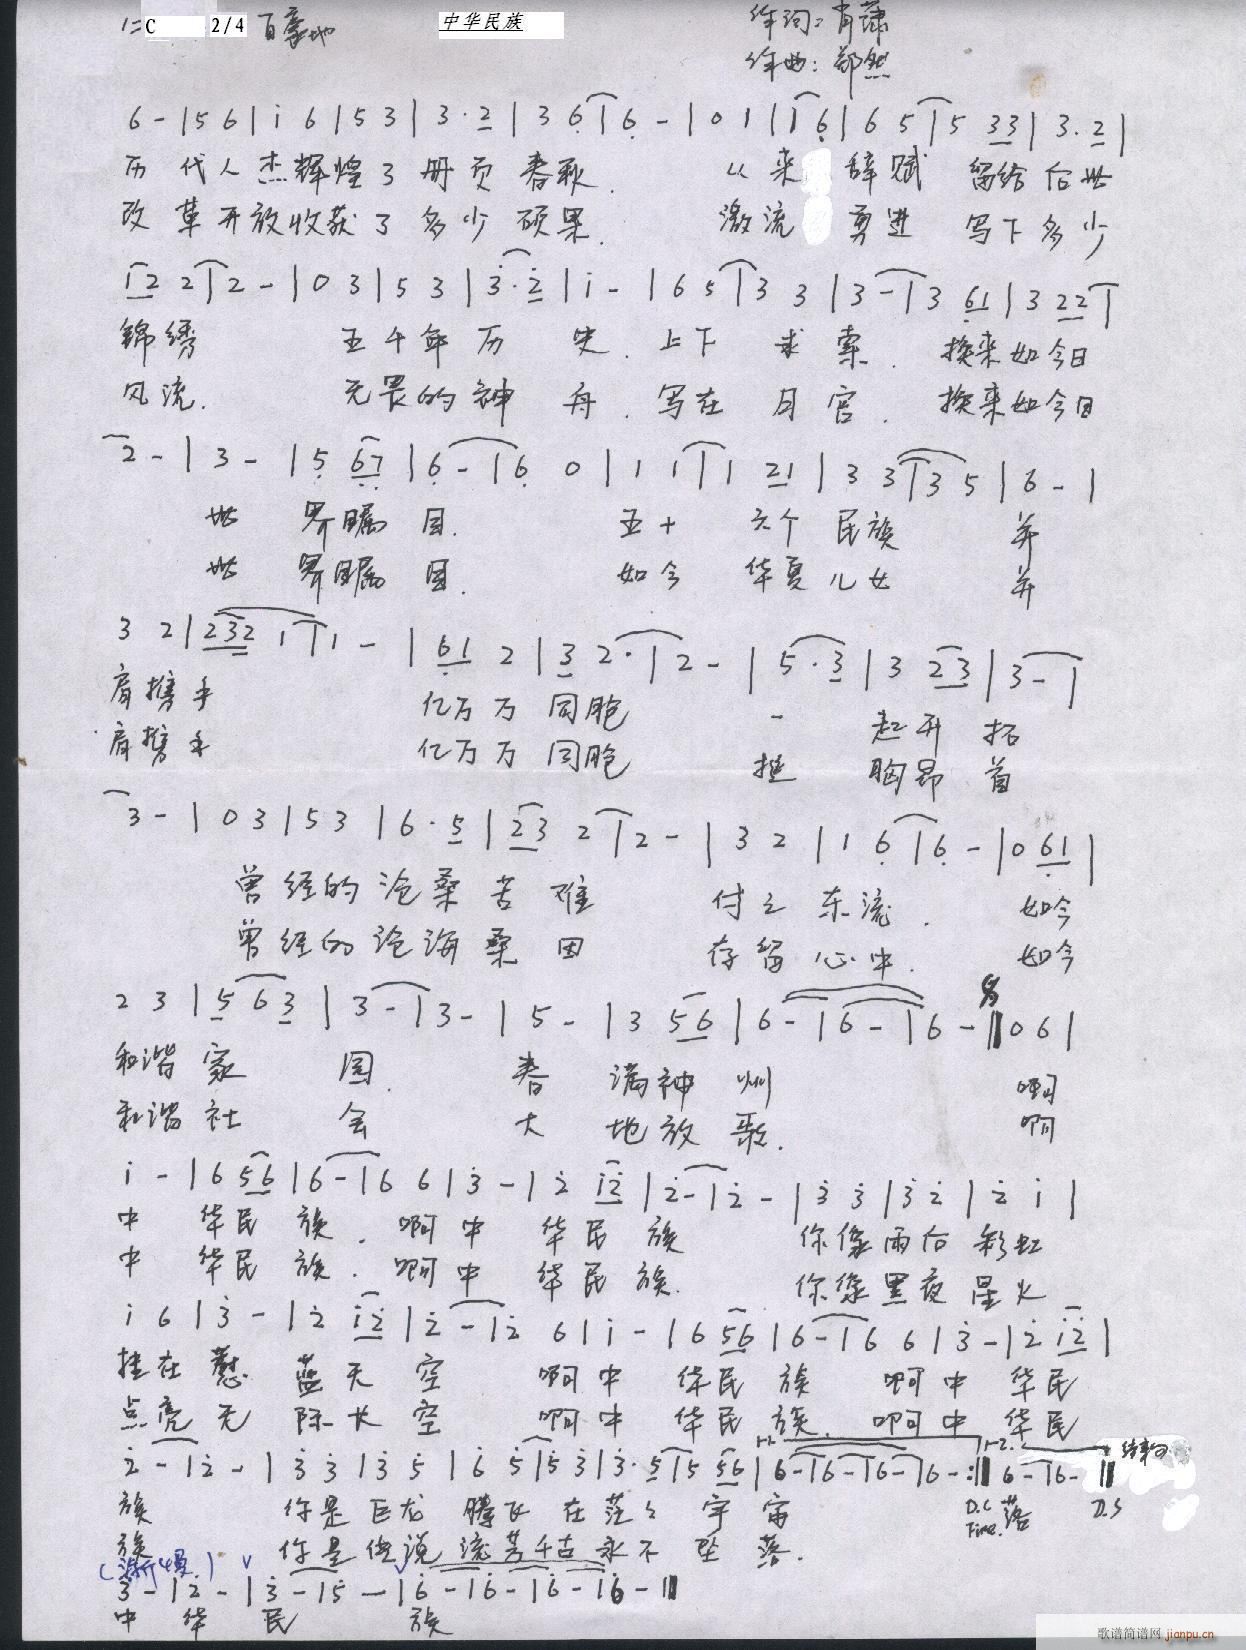 1=C 2/4 自豪地 中华民族 作词：肖萧
作曲：郑然
6 - | 5 6 | i 6 | 5 3 | 3 · 2 | 3 6 | 6 - | 0 1 | 1 6 | 6 5 | 5 33 | 3 . 2 |
历代人杰辉煌了册页春秋. 从来辞赋留给后世
改革开放收获了多少硕果. 激流勇进写下多少
12 2 | 2 - | 0 3 | 5 3 | 3 · 2 | i - | 6 5 | 3 3 | 3 - | 3 61 | 3 22 |
锦绣 五千年历史. 上下求索. 换来如今日
风流. 无畏的神舟. 写在月宫. 换来如今日
2 - | 3 - | 5 67 | 6 - | 6 0 | 1 1 | 1 21 | 3 3 | 3 5 | 6 - |
世界瞩目. 五十六个民族 并
世界瞩目. 如今华夏儿女 并
3 2 | 232 1 | 1 - | 61 2 | 3 2 · | 2 - | 5 · 3 | 3 23 | 3 - |
肩携手 亿万万同胞 一起开拓
肩携手 亿万万同胞 挺胸昂首
3 - | 0 3 | 5 3 | 6 · 5 | 23 2 | 2 - | 3 2 | 1 6 | 6 - | 0 61 |
曾经的沧桑苦难 付之东流. 如今
曾经的沧海桑田 存留心中. 如今
2 3 | 5 6 3 | 3 - | 3 - | 5 - | 3 56 | 6 - | 6 - | 6 - || 0 6 |
和谐家园. 春满神州 啊
和谐社会 大地放歌. 啊
i - | 6 56 | 6 - | 6 6 | 3 - | 2 i2 | 2 - | 2 - | 3 3 | 3 2 | 2 i |
中华民族. 啊中华民族 你像雨后彩虹
中华民族. 啊中华民族. 你像黑夜星火
i 6 | 3 - | 2 i2 | 2 - | 2 6 | i - | 6 56 | 6 - | 6 6 | 3 - | 2 i2 |
挂在 蓝天空 啊中华民族 啊中华民
点亮无际长空 啊中华民族. 啊中华民
2 - | 2 - | 3 3 | 3 5 | 6 5 | 5 3 | 3 · 5 | 5 56 | 6 - | 6 - | 6 - | 6 - :|| 6 - | 6 - || 结束句
族 你是巨龙腾飞在茫々宇宙 D.C 落 D.S
Fine.
族 你是传说流芳千古永不坠落.
(渐慢)
3 - | 2 - | 3 - | 5 - | 6 - | 6 - | 6 - | 6 - ||
中华民族
歌谱简谱网 jianpu.cn